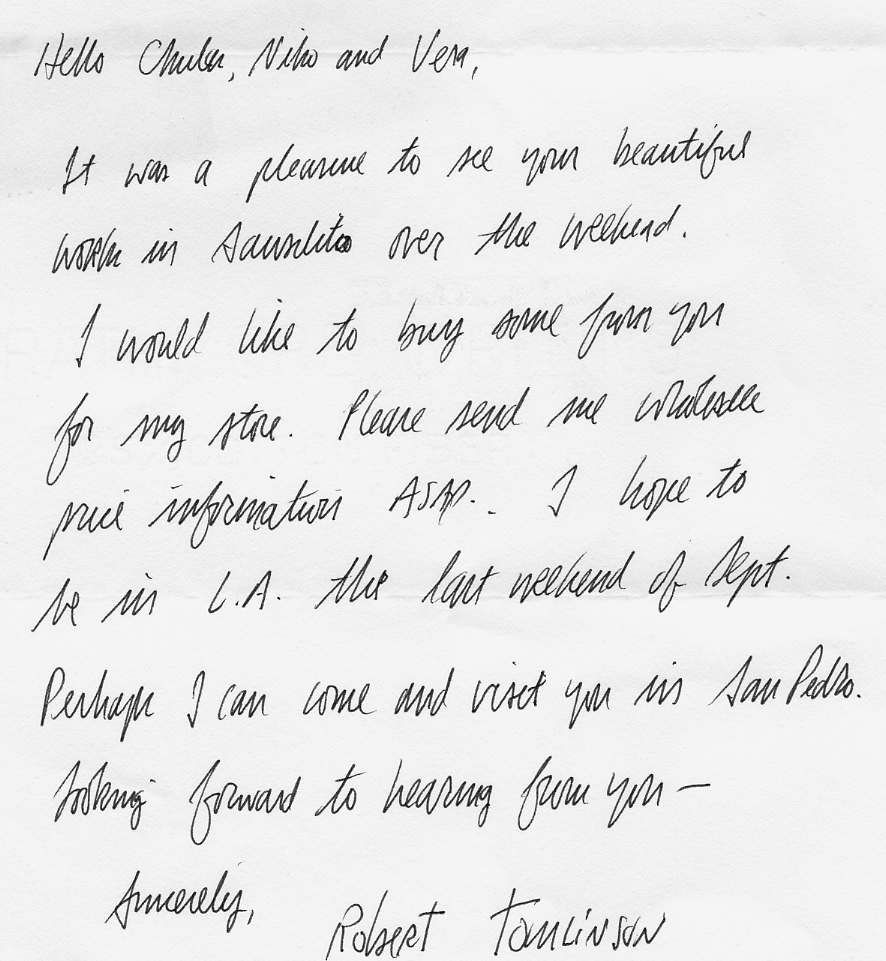 Hello Niko and Vera,
It was a pleasure to see your beautiful
work in Sausalito over the weekend.
I would like to buy some from you
for my store. Please send me wholesale
price information ASAP. I hope to
be in L.A. the last weekend of Sept.
Perhaps I can come and visit you in San Pedro.
Looking forward to hearing from you —
Sincerely,
Robert Tomlinson